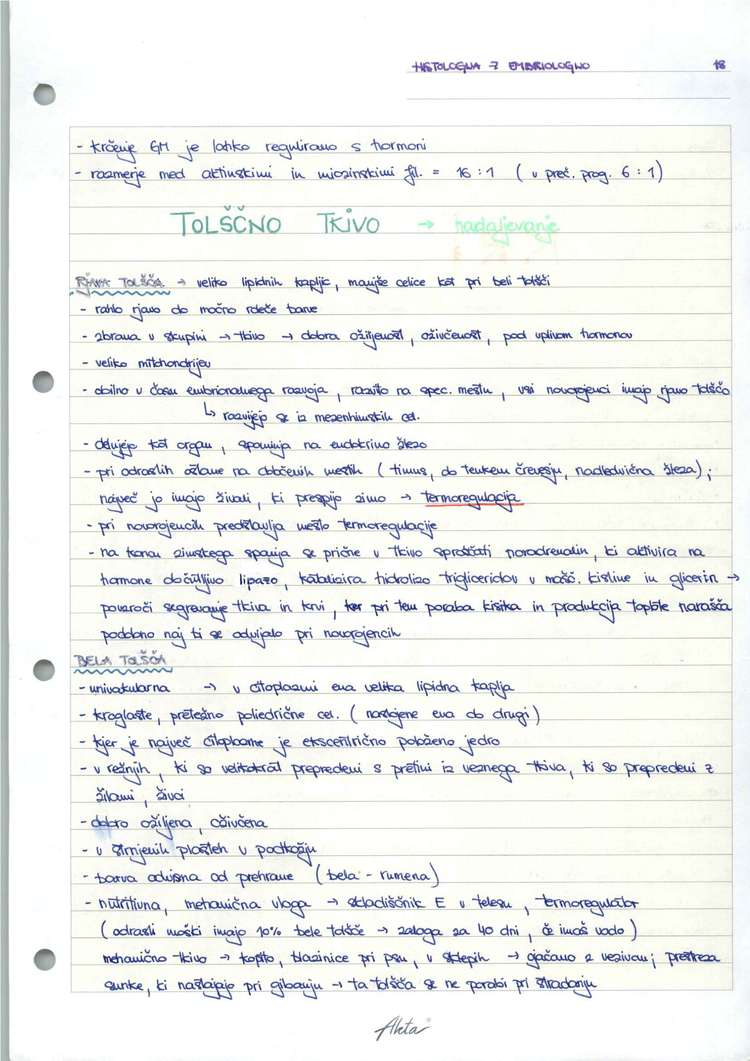 HISTOLOGIJA Z EMBRIOLOGIJO 18
- krčenje GM je lahko regulirano s hormoni
- razmerje med aktinskimi in miozinskimi fil. = 16 : 1 ( v preč. prog. 6 : 1)
TOLŠČNO TKIVO → nadaljevanje
RJAVA TOLŠČA → veliko lipidnih kapljic, manjše celice kot pri beli tolšči
- rahlo rjavo do močno rdeče barve
- zbrana v skupini → tkivo → dobra ožiljenost, oživčenost, pod vplivom hormonov
- veliko mitohondrijev
- obilno v času embrionalnega razvoja, razvito na spec. mestu, vsi novorojenci imajo rjavo tolščo
↳ razvijejo se iz mezenhimskih cel.
- delujejo kot organ, spominja na endokrino žlezo
- pri odraslih ostane na določenih mestih ( timus, ob tenkem črevesju, nadledvična žleza);
največ jo imajo živali, ki prespijo zimo → termoregulacija
- pri novorojencih predstavlja mesto termoregulacije
- na koncu zimskega spanja se prične v tkivo sproščati noradrenalin, ki aktivira na
hormone občutljivo lipazo, katalizira hidrolizo trigliceridov v mašč. kisline in glicerin →
povzroči segrevanje tkiva in krvi, pri tem poraba kisika in produkcija toplote narašča
podobno naj bi se odvijalo pri novorojencih
BELA TOLŠČA
- univakularna → v citoplazmi ena velika lipidna kaplja
- kroglaste, pretežno poliedrične cel. ( naslojene ena ob drugi)
- kjer je največ citoplazme je ekscentrično položeno jedro
- v režnjih, ki so velikokrat prepredeni s pretini iz veznega tkiva, ki so prepredeni z
žilami, živci
- dobro ožiljena, oživčena
- v strnjenih plasteh v podkožju
- barva odvisna od prehrane (bela - rumena)
- nutritivna, mehanična vloga → skladiščnik E v telesu, termoregulator
( odrasli moški imajo 10% bele tolšče → zaloga za 40 dni, če imaš vodo)
mehanično tkivo → kopito, blazinice pri psu, v sklepih → ojačano z vezivom; prestreza
sunke, ki nastajajo pri gibanju → ta tolšča se ne porabi pri stradanju
Ahta